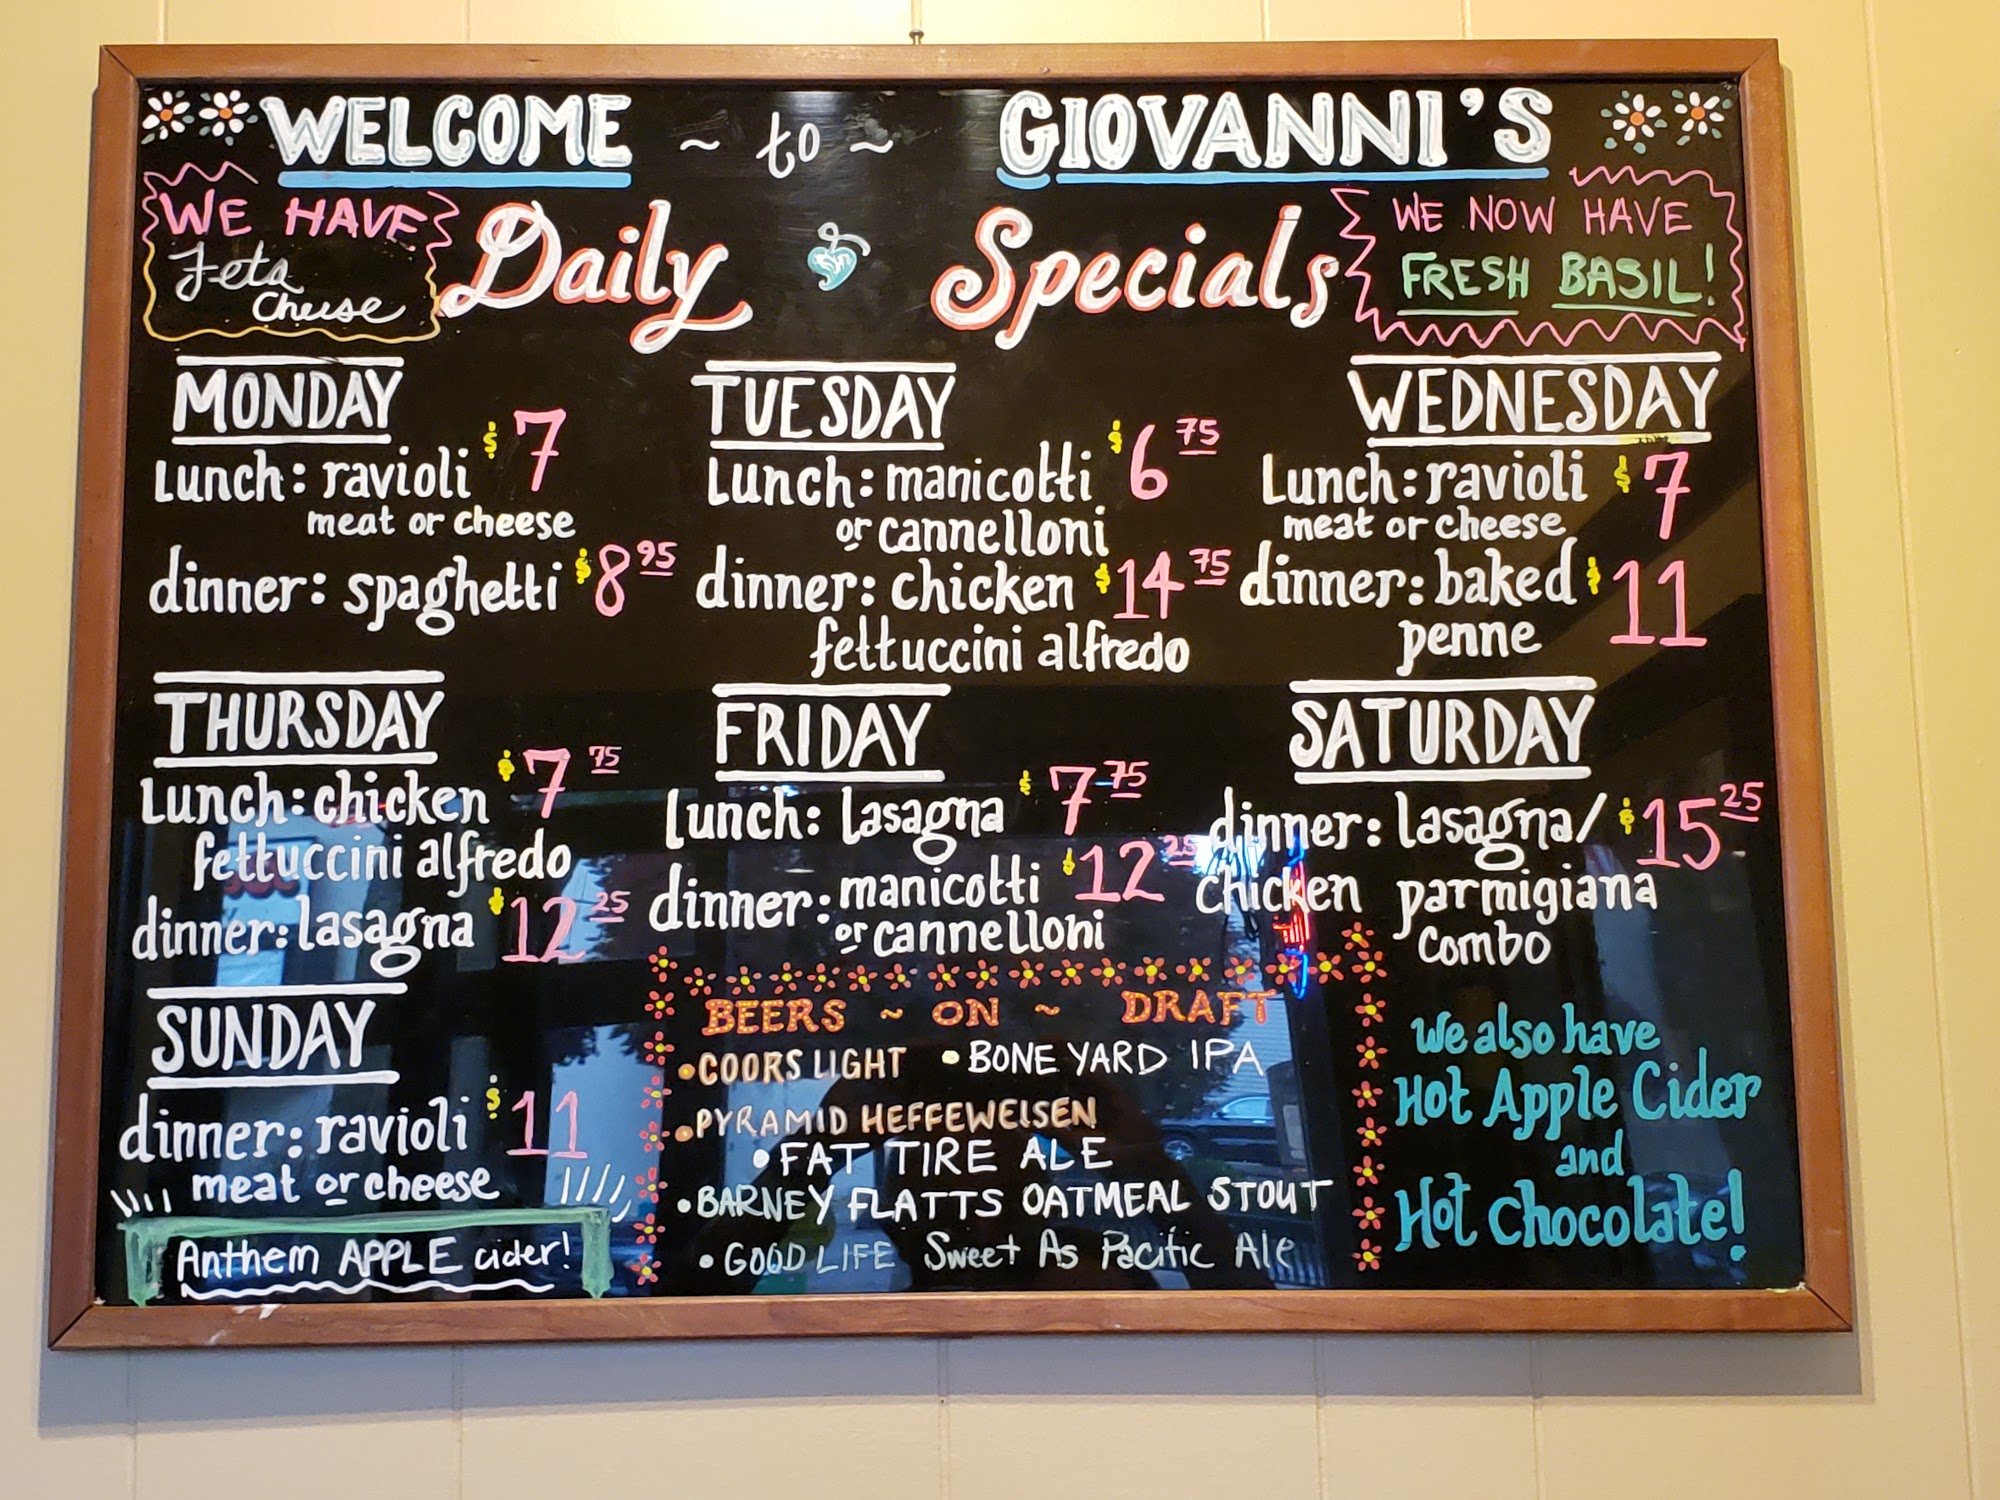 WELCOME ~ to ~ GIOVANNI'S
WE HAVE
Feta
Cheese
Daily Specials
WE NOW HAVE
FRESH BASIL!
MONDAY
Lunch: ravioli $7
meat or cheese
dinner: spaghetti $8 95
TUESDAY
Lunch: manicotti $6 75
or cannelloni
dinner: chicken $14 75
fettuccini alfredo
WEDNESDAY
Lunch: ravioli $7
meat or cheese
dinner: baked $11
penne
THURSDAY
Lunch: chicken $7 75
fettuccini alfredo
dinner: lasagna $12 25
FRIDAY
lunch: lasagna $7 75
dinner: manicotti $12 25
or cannelloni
SATURDAY
dinner: lasagna/ $15 25
chicken parmigiana
combo
SUNDAY
dinner: ravioli $11
meat or cheese
Anthem APPLE cider!
BEERS ~ ON ~ DRAFT
• COORS LIGHT • BONE YARD IPA
• PYRAMID HEFFEWEISEN
• FAT TIRE ALE
• BARNEY FLATTS OATMEAL STOUT
• GOOD LIFE Sweet As Pacific Ale
We also have
Hot Apple Cider
and
Hot Chocolate!